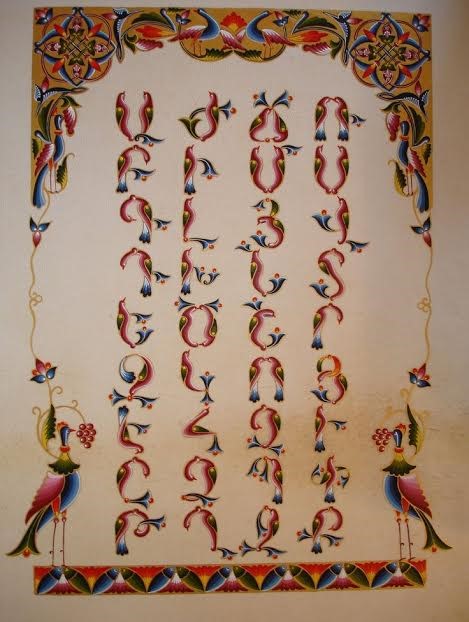 Ա Բ Գ Դ Ե Զ Է Ը Թ
Ժ Ի Լ Խ Ծ Կ Հ Ձ Ղ
Ճ Մ Յ Ն Շ Ո Չ Պ Ջ
Ռ Ս Վ Տ Ր Ց Ւ Փ Ք